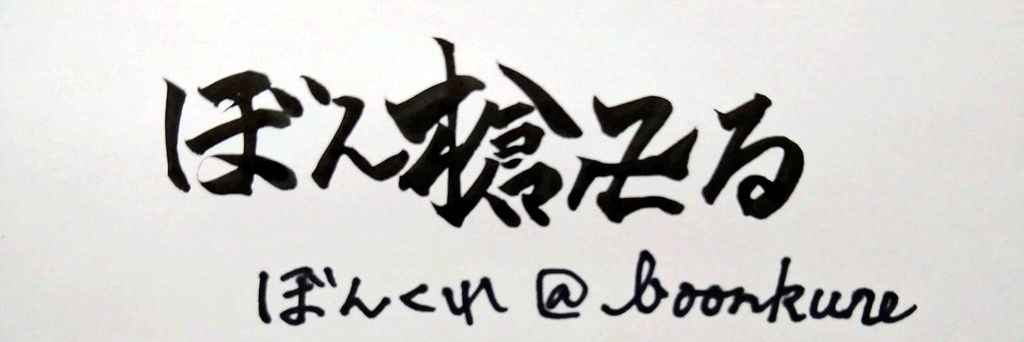 ぼん槍卍る
ぼんくれ @boonkure